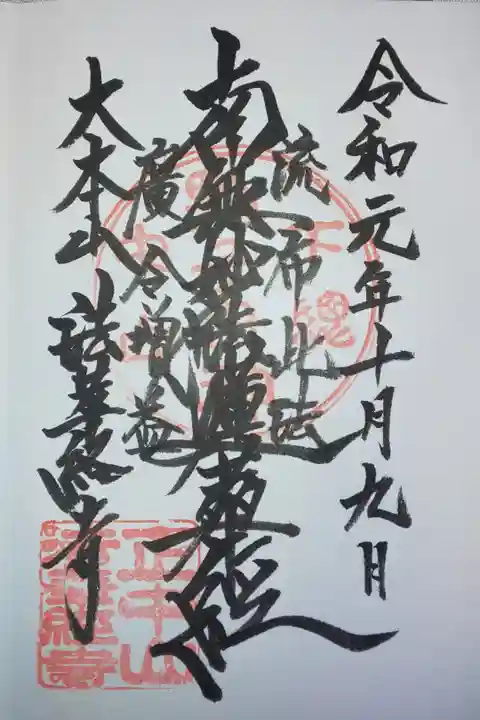 令和元年十月九日
流布此法
南無妙法蓮華経
廣令増益
大本山 法華経寺
正中山
法華経寺